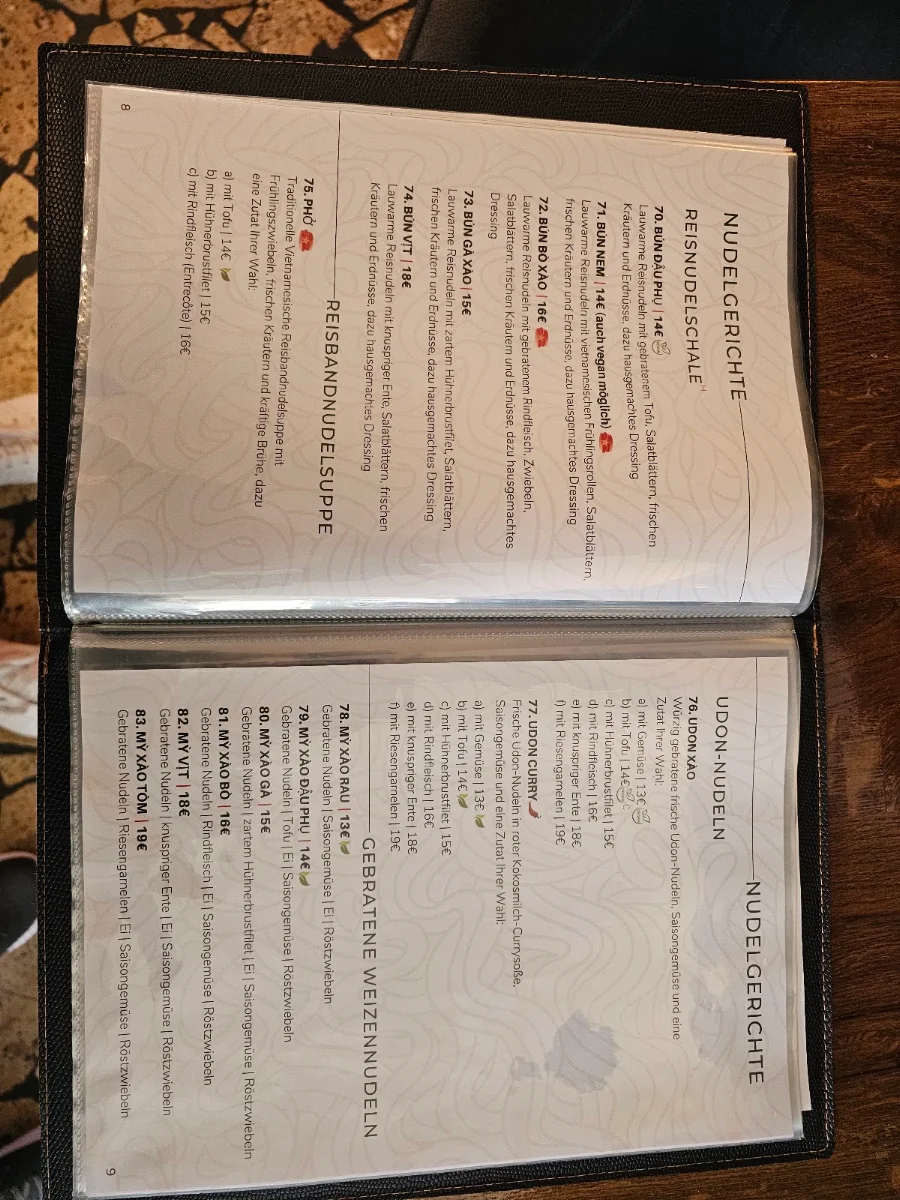 NUDELGERICHTE
REISNUDELSCHALE
70. BÚN ĐẬU PHỤ | 14€
Lauwarme Reisnudeln mit gebratenem Tofu, Salatblättern, frischen
Kräutern und Erdnüsse, dazu hausgemachtes Dressing
71. BÚN NEM | 14€ (auch vegan möglich)
Lauwarme Reisnudeln mit vietnamesischen Frühlingsrollen, Salatblättern,
frischen Kräutern und Erdnüsse, dazu hausgemachtes Dressing
72. BÚN BÒ XÀO | 16€
Lauwarme Reisnudeln mit gebratenem Rindfleisch, Zwiebeln,
Salatblättern, frischen Kräutern und Erdnüsse, dazu hausgemachtes
Dressing
73. BÚN GÀ XÀO | 15€
Lauwarme Reisnudeln mit zartem Hühnerbrustfilet, Salatblättern,
frischen Kräutern und Erdnüsse, dazu hausgemachtes Dressing
74. BÚN VỊT | 18€
Lauwarme Reisnudeln mit knuspriger Ente, Salatblättern, frischen
Kräutern und Erdnüsse, dazu hausgemachtes Dressing
REISBANDNUDELSUPPE
75. PHỞ
Traditionelle Vietnamesische Reisbandnudelsuppe mit
Frühlingszwiebeln, frischen Kräutern und kräftige Brühe, dazu
eine Zutat Ihrer Wahl:
a) mit Tofu | 14€
b) mit Hühnerbrustfilet | 15€
c) mit Rindfleisch (Entrecôte) | 16€
8
NUDELGERICHTE
UDON-NUDELN
76. UDON XAO
Würzig gebratene frische Udon-Nudeln, Saisongemüse und eine
Zutat Ihrer Wahl:
a) mit Gemüse | 13€
b) mit Tofu | 14€
c) mit Hühnerbrustfilet | 15€
d) mit Rindfleisch | 16€
e) mit knuspriger Ente | 18€
f) mit Riesengarnelen | 19€
77. UDON CURRY
Frische Udon-Nudeln in roter Kokosmilch-Currysoße,
Saisongemüse und eine Zutat Ihrer Wahl:
a) mit Gemüse | 13€
b) mit Tofu | 14€
c) mit Hühnerbrustfilet | 15€
d) mit Rindfleisch | 16€
e) mit knuspriger Ente | 18€
f) mit Riesengarnelen | 19€
GEBRATENE WEIZENNUDELN
78. MỲ XÀO RAU | 13€
Gebratene Nudeln | Saisongemüse | Ei | Röstzwiebeln
79. MỲ XÀO ĐẬU PHỤ | 14€
Gebratene Nudeln | Tofu | Ei | Saisongemüse | Röstzwiebeln
80. MỲ XÀO GÀ | 15€
Gebratene Nudeln | zartem Hühnerbrustfilet | Ei | Saisongemüse | Röstzwiebeln
81. MỲ XÀO BÒ | 16€
Gebratene Nudeln | Rindfleisch | Ei | Saisongemüse | Röstzwiebeln
82. MỲ VỊT | 18€
Gebratene Nudeln | knuspriger Ente | Ei | Saisongemüse | Röstzwiebeln
83. MỲ XÀO TÔM | 19€
Gebratene Nudeln | Riesengarnelen | Ei | Saisongemüse | Röstzwiebeln
9